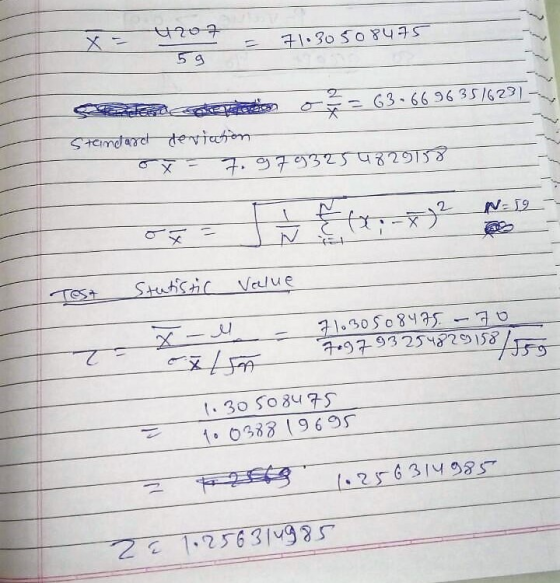 x̄ = 4207 / 59 = 71.30508475
σ²x̄ = 63.66963516231
Standard deviation
σx̄ = 7.97932548 29158
σx̄ = √(1/N Σᴺᵢ₌₁ (xᵢ - x̄)²) N = 59
Test Statistic Value
z = (x̄ - μ) / (σx̄/√n) = (71.30508475 - 70) / (7.97932548 29158/√59)
= 1.30508475 / 1.038819695
= 1.256314985
z = 1.256314985